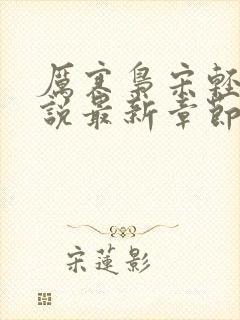 厲寒梟宋輕
說最新章節
宋蓮影